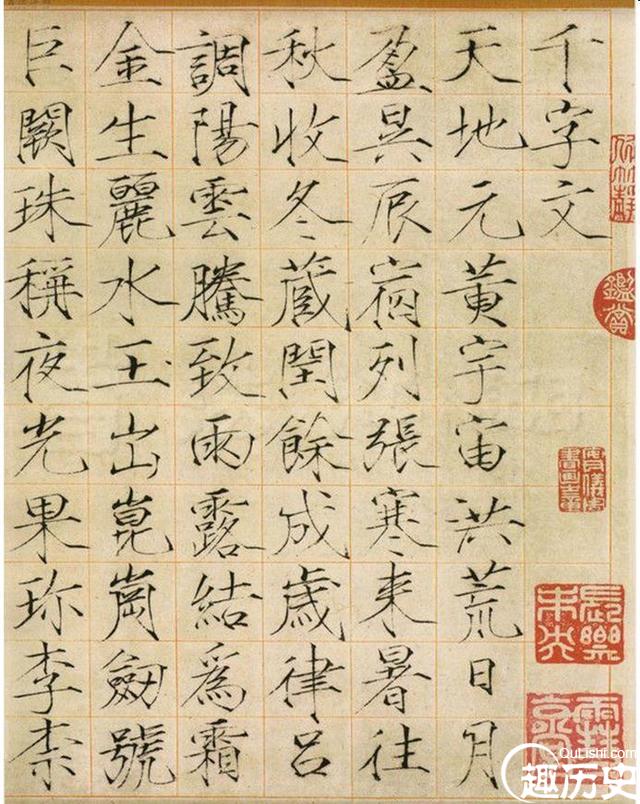 千字文
天地元黄宇宙洪荒日月
盈昃辰宿列張寒来暑往
秋收冬蔵閏餘成歳律呂
調陽雲騰致雨露結爲霜
金生麗水玉出崑崗劒號
巨闕珠稱夜光果珍李柰
鑑賞
QuLishi.com
趣历史